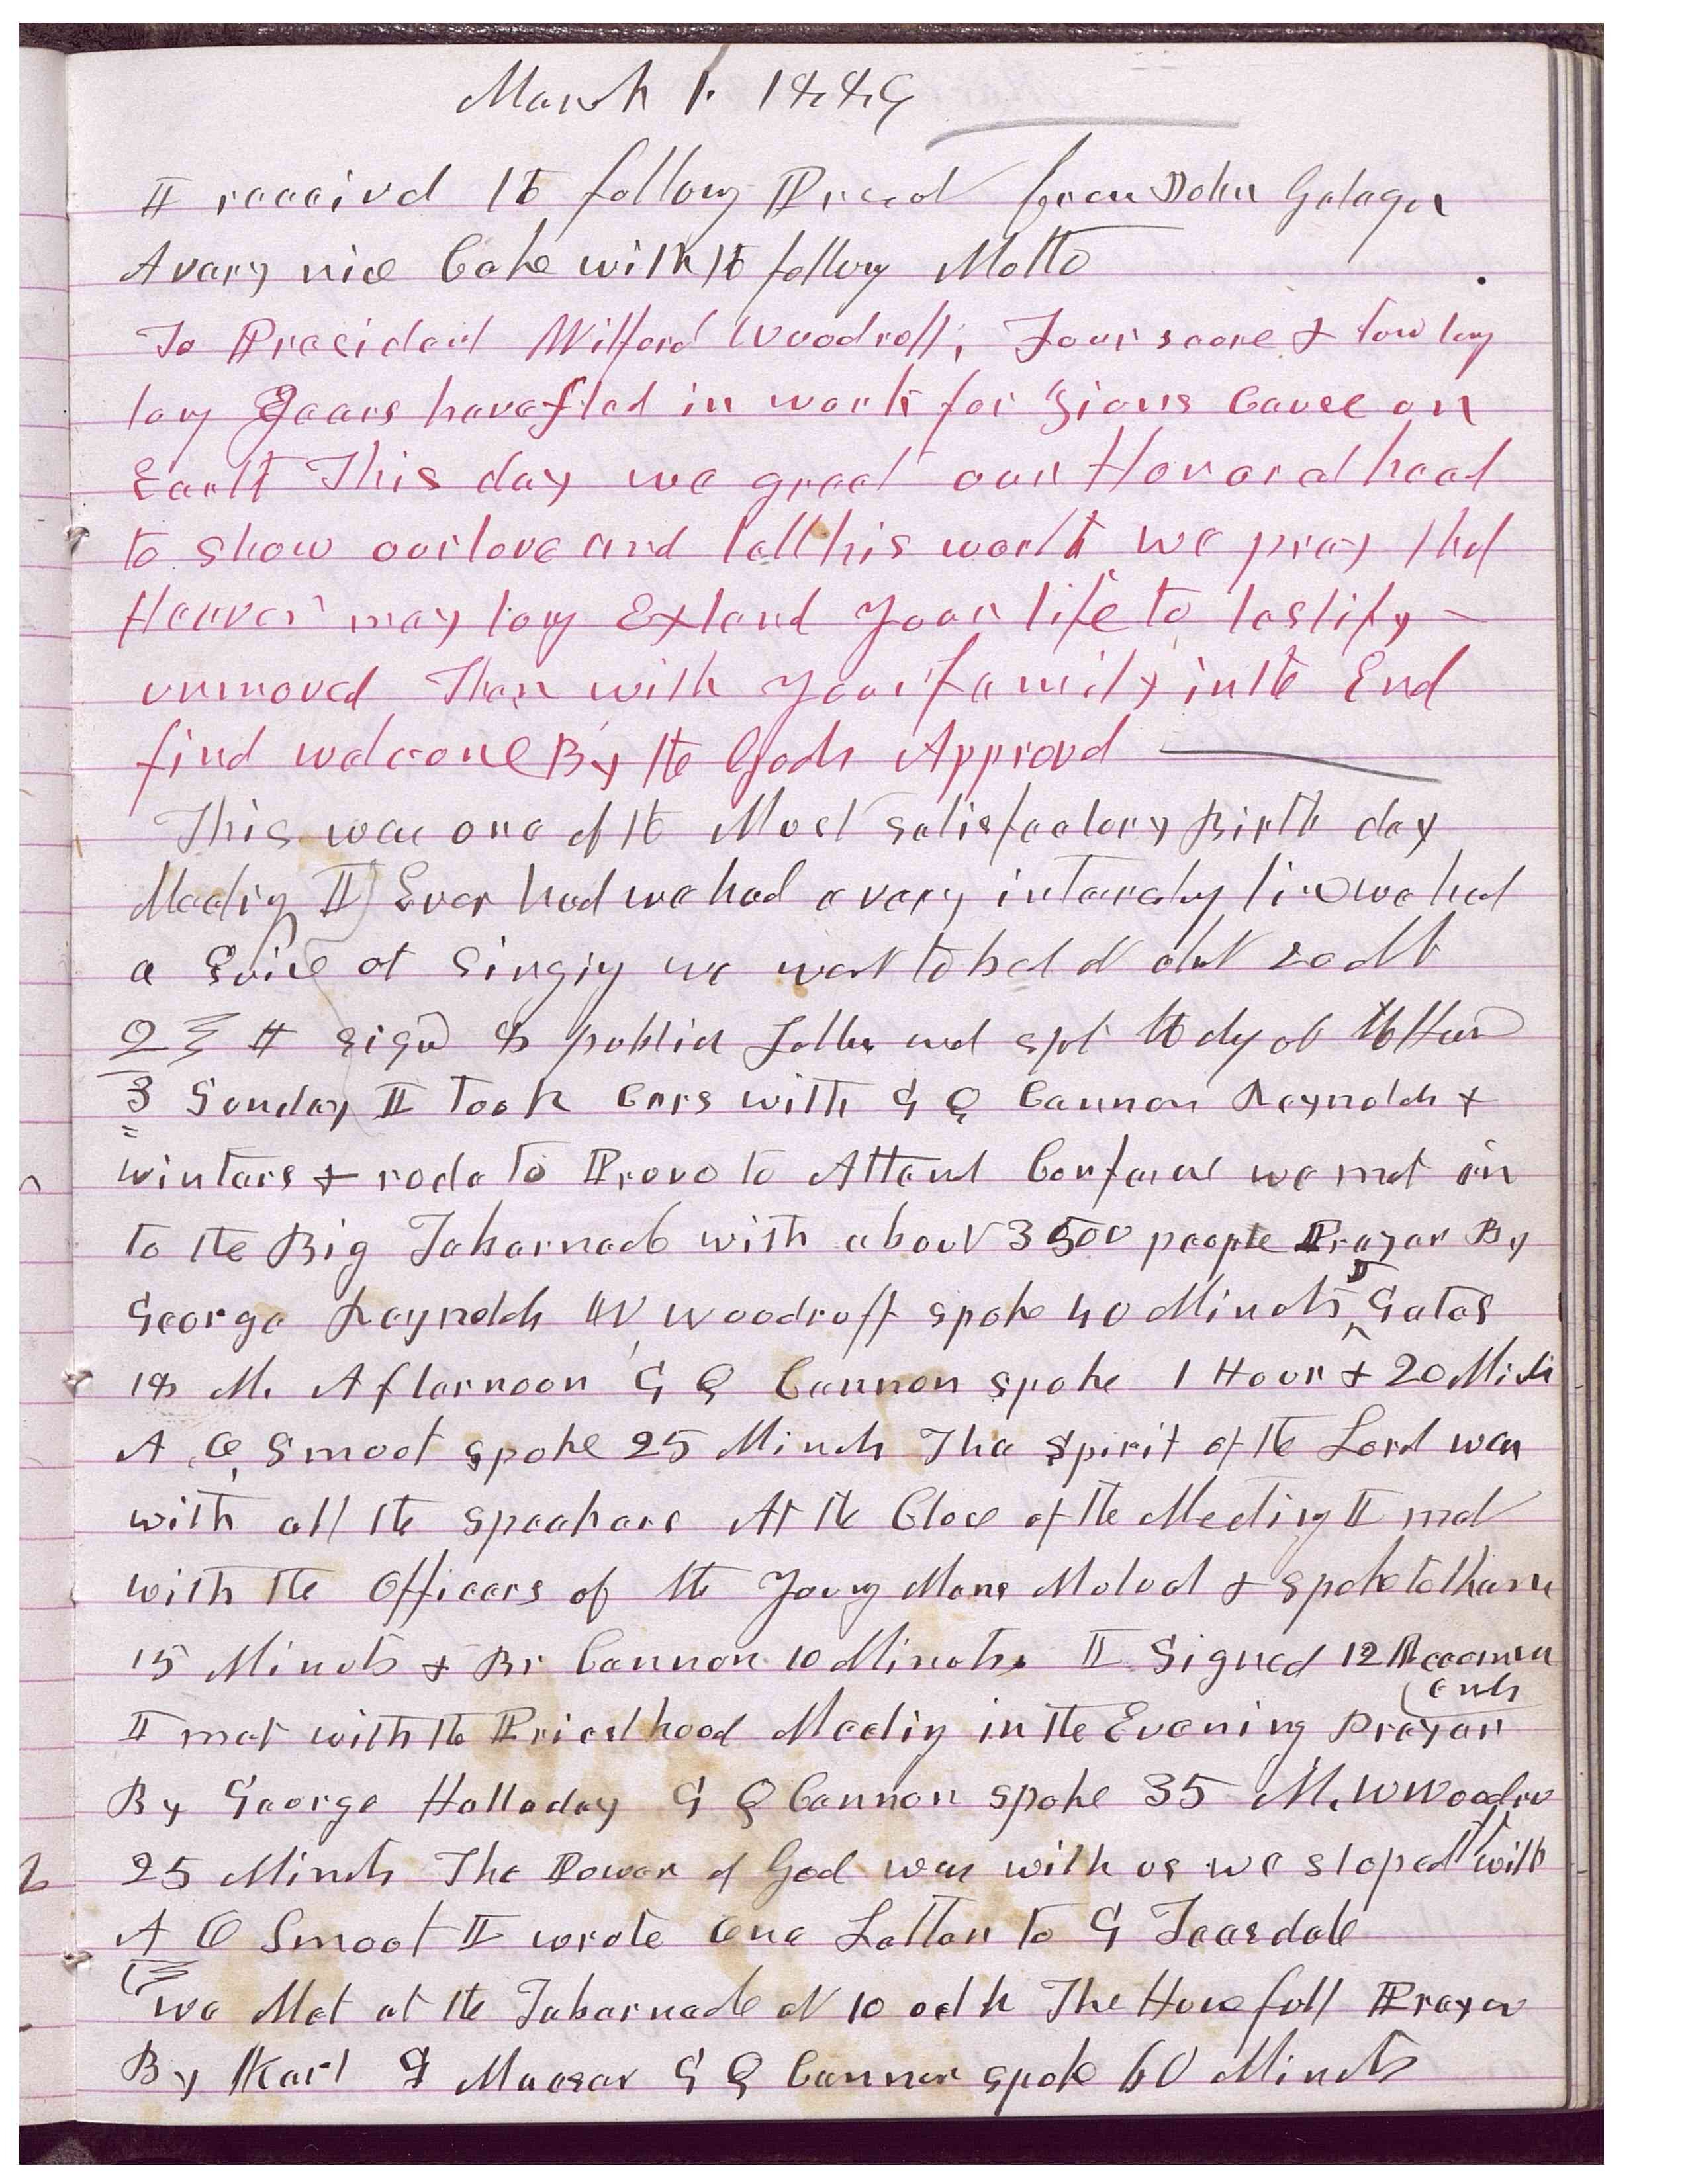 March 1. 1889
I receivd the followg Present from John Galager
A very nice Cake with the followg Motto
To President Wilford Woodruff, Four score & two long
long years have fled in work for Zions Cause on
Earth This day we greet our Honored head
to show our love and tell his worth we pray that
Heaven may long Extend your life to testify
unmoved Then with your family in the End
find welcome By the Gods Approvd
This was one of the Most satisfactory Birth day
Meeting I Ever had we had a very interesting time we had
a of singing we went to bed at about 10 oclok
2 I signed 8 public Letters and spet the day at the
3 Sunday I took Cars with G Q Cannon Reynolds &
winters & rode to Provo to Attend Conference we met in
to the Big Tabernacle with about 3500 people Prayer By
George Reynolds W Woodruff spoke 40 Minuts J Gates
18 M. Afternoon G Q Cannon spoke 1 Hour & 20 Minuts
A O Smoot spoke 25 Minuts The spirit of the Lord was
with all the speakers At the Close of the Meeting I met
with the Officers of the Young Mens Mutual & spoke to them
15 Minuts & Br Cannon 10 Minuts. I Signed 12 Recommen
ends
I met with the Priesthood Meeting in the Evening Prayer
By George Halladay G Q Cannon spoke 35 M. W Woodruff
25 Minuts The Power of God was with us we stoped with
A O Smoot I wrote one Letter to G Teasdale
we Met at the Tabernacle at 10 oclk The House full Prayer
By Karl G Maeser G Q Cannon spoke 60 Minuts